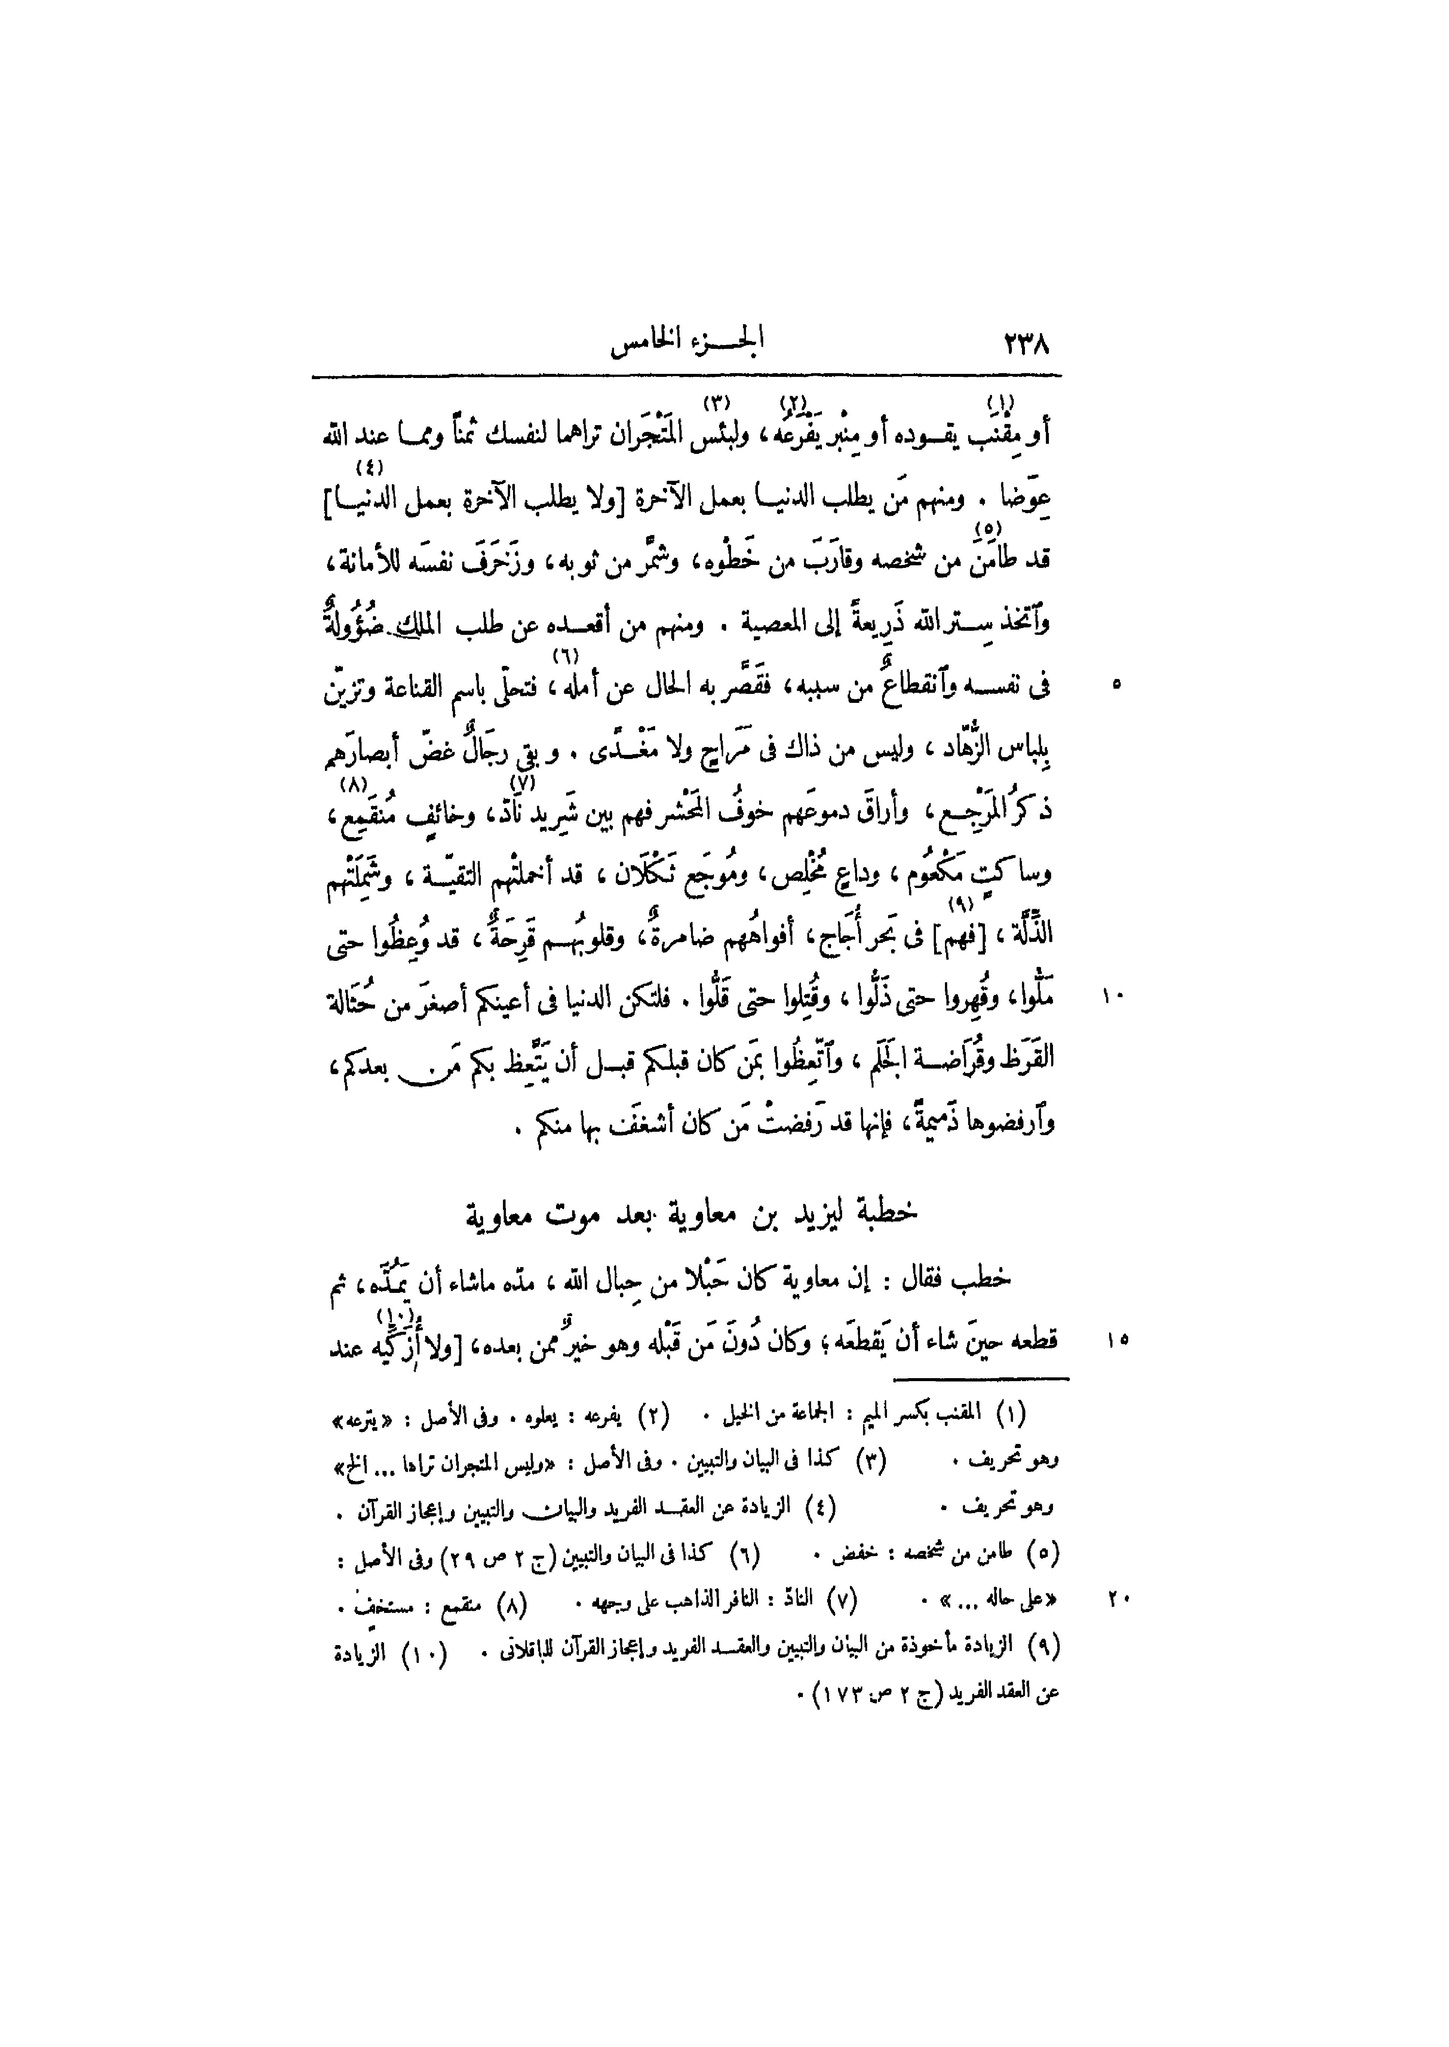 ٢٣٨ الجزء الخامس
(١) (٢) (٣)
أو مِقْنَب يقوده أو مِنْبر يَفْرَعُه، ولبئس المَتْجَران تراهما لنفسك ثمناً ومما عند الله
(٤)
عِوَضا . ومنهم مَن يطلب الدنيا بعمل الآخرة [ولا يطلب الآخرة بعمل الدنيا]
(٥)
قد طامَنَ من شخصه وقارَبَ من خَطْوه، وشمَّر من ثوبه، وزَخرَفَ نفسَه للأمانة،
وٱتخذ سِتر الله ذَرِيعةً إلى المعصية . ومنهم من أقعده عن طلب الملك ضُؤُولةٌ
(٦)
فى نفسه وٱنقطاعٌ من سببه، فقَصَّر به الحال عن أمله، فتحلّى باسم القناعة وتزيّن ٥
بِلباس الزُّهّاد، وليس من ذاك فى مَرَاحٍ ولا مَغْدًى . وبقى رِجَالٌ غضّ أبصارَهم
(٧) (٨)
ذكرُ المَرْجِع، وأراقَ دموعَهم خوفُ المَحْشر فهم بين شَرِيد نَادّ، وخائفٍ مُنقَمِع،
وساكتٍ مَكْعُوم، وداعٍ مُخْلِص، ومُوجَع ثَكْلَان، قد أخملتْهم التقيّة، وشَمِلَتْهم
(٩)
الذِّلَّة، [فهم] فى بَحر أُجَاج، أفواهُهم ضامرةٌ، وقلوبُهم قَرِحَةٌ، قد وُعِظُوا حتى
مَلُّوا، وقُهِروا حتى ذَلُّوا، وقُتِلوا حتى قَلُّوا . فلتكن الدنيا فى أعينكم أصغرَ من حُثَالة ١٠
القَرَظ وقُرَاضة الجَلَم، وٱتّعِظُوا بمَن كان قبلكم قبل أن يَتَّعِظ بكم مَن بعدكم،
وٱرفضوها ذَميمةً، فإنها قد رَفضتْ مَن كان أشغَفَ بها منكم .
خطبة ليزيد بن معاوية بعد موت معاوية
خطب فقال : إن معاوية كان حَبْلا من حِبال الله، مدّه ما شاء أن يَمُدَّه، ثم
(١٠)
قطعه حينَ شاء أن يَقطعَه؛ وكان دُونَ مَن قَبْله وهو خيرٌ ممن بعده، [ولا أُزَكِّيه عند ١٥
(١) المقنب بكسر الميم : الجماعة من الخيل . (٢) يفرعه : يعلوه . وفى الأصل : «يترعه»
وهو تحريف . (٣) كذا فى البيان والتبيين . وفى الأصل : «وليس المتجران تراها ... الخ»
وهو تحريف . (٤) الزيادة عن العقد الفريد والبيان والتبيين وإعجاز القرآن .
(٥) طامن من شخصه : خفض . (٦) كذا فى البيان والتبيين (ج ٢ ص ٢٩) وفى الأصل :
«على حاله ...» . (٧) النادّ : النافر الذاهب على وجهه . (٨) منقمع : مستخفٍ . ٢٠
(٩) الزيادة مأخوذة من البيان والتبيين والعقد الفريد وإعجاز القرآن للباقلانى . (١٠) الزيادة
عن العقد الفريد (ج ٢ ص ١٧٣) .